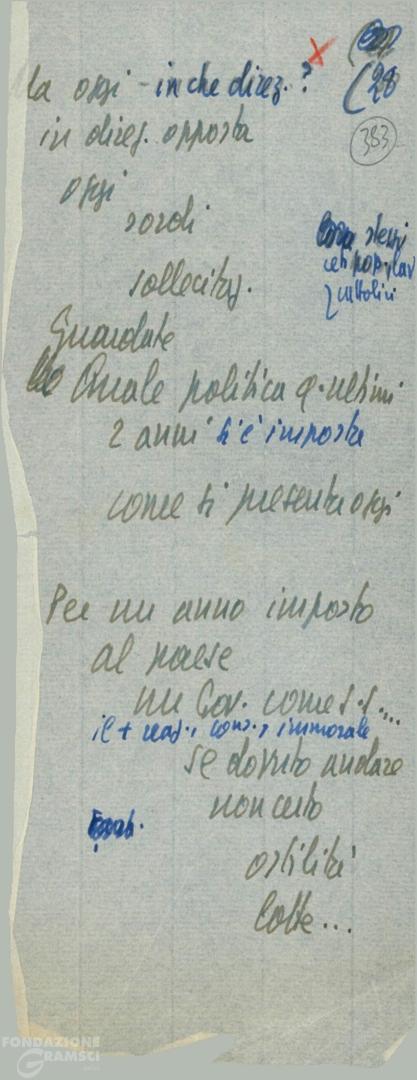 (28
383
la oggi - in che direz. ?
in direz. opposta
oggi
sordi
stessi
cattolici
sollecitaz.
Guardate
Quale politica q. ultimi
2 anni si è imposta
come si presenta oggi
Per un anno imposto
al paese
un Gov. come s.s....
il + reaz., cons., immorale
se dovuto andare
non certo
ostilità
lotte...
FONDAZIONE
GRAMSCI